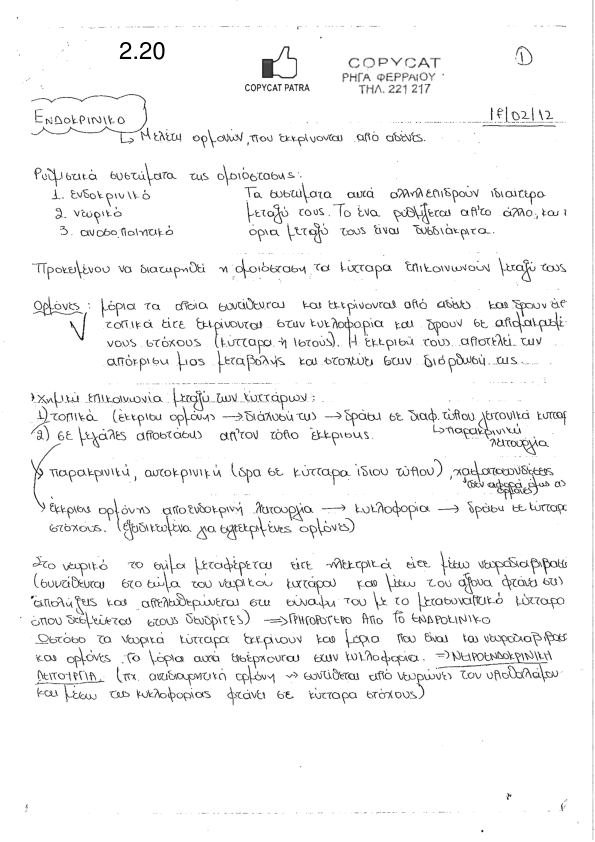 2.20
COPYCAT PATRA
COPYCAT
ΡΗΓΑ ΦΕΡΡΑΙΟΥ
ΤΗΛ. 221 217
1
ΕΝΔΟΚΡΙΝΙΚΟ
/02/12
↳ Μελέτη ορμονών, που εκκρίνονται από αδένες.
Ρυθμιστικά συστήματα της ομοιόστασης:
1. ενδοκρινικό Τα συστήματα αυτά αλληλεπιδρούν ιδιαίτερα
2. νευρικό μεταξύ τους. Το ένα ρυθμίζεται απ'το άλλο, και
3. ανοσοποιητικό όρια μεταξύ τους είναι δυσδιάκριτα.
Προκειμένου να διατηρηθεί η ομοιόσταση τα κύτταρα επικοινωνούν μεταξύ τους
Ορμόνες: μόρια τα οποία συντίθενται και εκκρίνονται από αδένες και δρουν είτ
τοπικά είτε εκκρίνονται στην κυκλοφορία και δρουν σε απομακρυσμέ-
νους στόχους (κύτταρα ή ιστούς). Η έκκρισή τους αποτελεί την
απόκριση μιας μεταβολής και στοχεύει στην διόρθωσή της.
Χημική επικοινωνία μεταξύ των κυττάρων:
1) τοπικά (έκκριση ορμόνης → διάλυσή της → δράση σε διαφ. τύπου γειτονικά κυτταρ
2) σε μεγάλες αποστάσεις απ'τον τόπο έκκρισης. ↳ παρακρινική
λειτουργία
παρακρινική, αυτοκρινική (δρα σε κύτταρα ίδιου τύπου), χασματοσυνδέσεις
(δεν αφορά όμως σε
ορμόνες)
έκκριση ορμόνης από ενδοκρινή λειτουργία → κυκλοφορία → δράση σε κύτταρα
στόχους. (εξειδικευμένα για συγκεκριμένες ορμόνες)
Στο νευρικό το σήμα μεταφέρεται είτε ηλεκτρικά είτε μέσω νευροδιαβιβασ
(συντίθενται στο σώμα του νευρικού κυττάρου και μέσω του άξονα φτάνει στις
απολήξεις και απελευθερώνεται στη σύναψή του με το μετασυναπτικό κύτταρο
όπου δεσμεύεται στους δενδρίτες) ⇒ ΓΡΗΓΟΡΟΤΕΡΟ ΑΠΟ ΤΟ ΕΝΔΟΚΡΙΝΙΚΟ
Ωστόσο τα νευρικά κύτταρα εκκρίνουν και μόρια που είναι και νευροδιαβιβασ
και ορμόνες. Τα μόρια αυτά εισέρχονται στην κυκλοφορία. ⇒ ΝΕΥΡΟΕΝΔΟΚΡΙΝΙΚΗ
ΛΕΙΤΟΥΡΓΙΑ. (πχ. αντιδιουρητική ορμόνη → συντίθεται από νευρώνες του υποθαλάμου
και μέσω της κυκλοφορίας φτάνει σε κύτταρα στόχους)